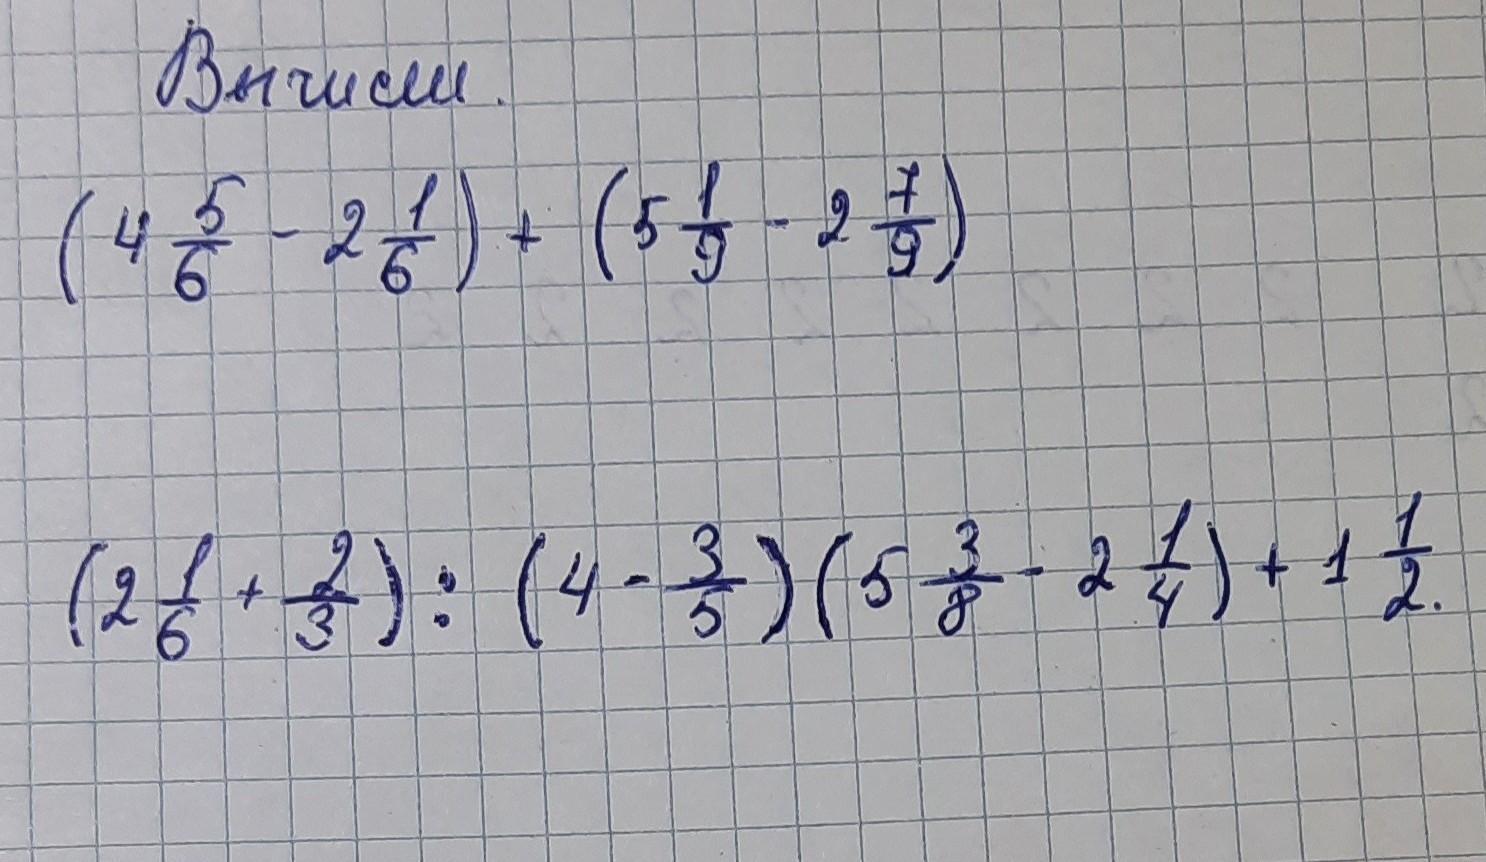 Вычисли.
(4 5/6 - 2 1/6) + (5 1/9 - 2 7/9)
(2 1/6 + 2/3) : (4 - 3/5)(5 3/8 - 2 1/4) + 1 1/2.